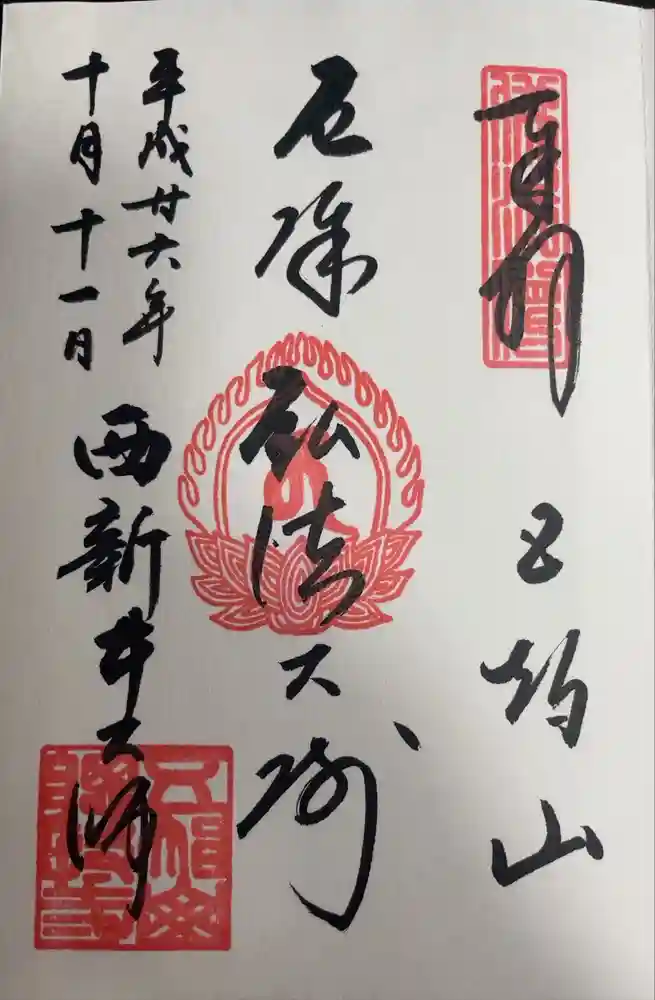 奉拝
五智山
厄除弘法大師
平成廿六年
十月十一日
西新井大師
五智山
總持寺